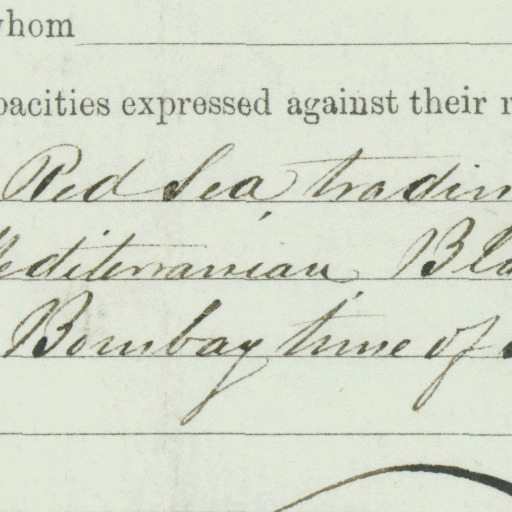 whom
pacities expressed against their r
Red Sea tradin
editerranian Bla
Bombay time of